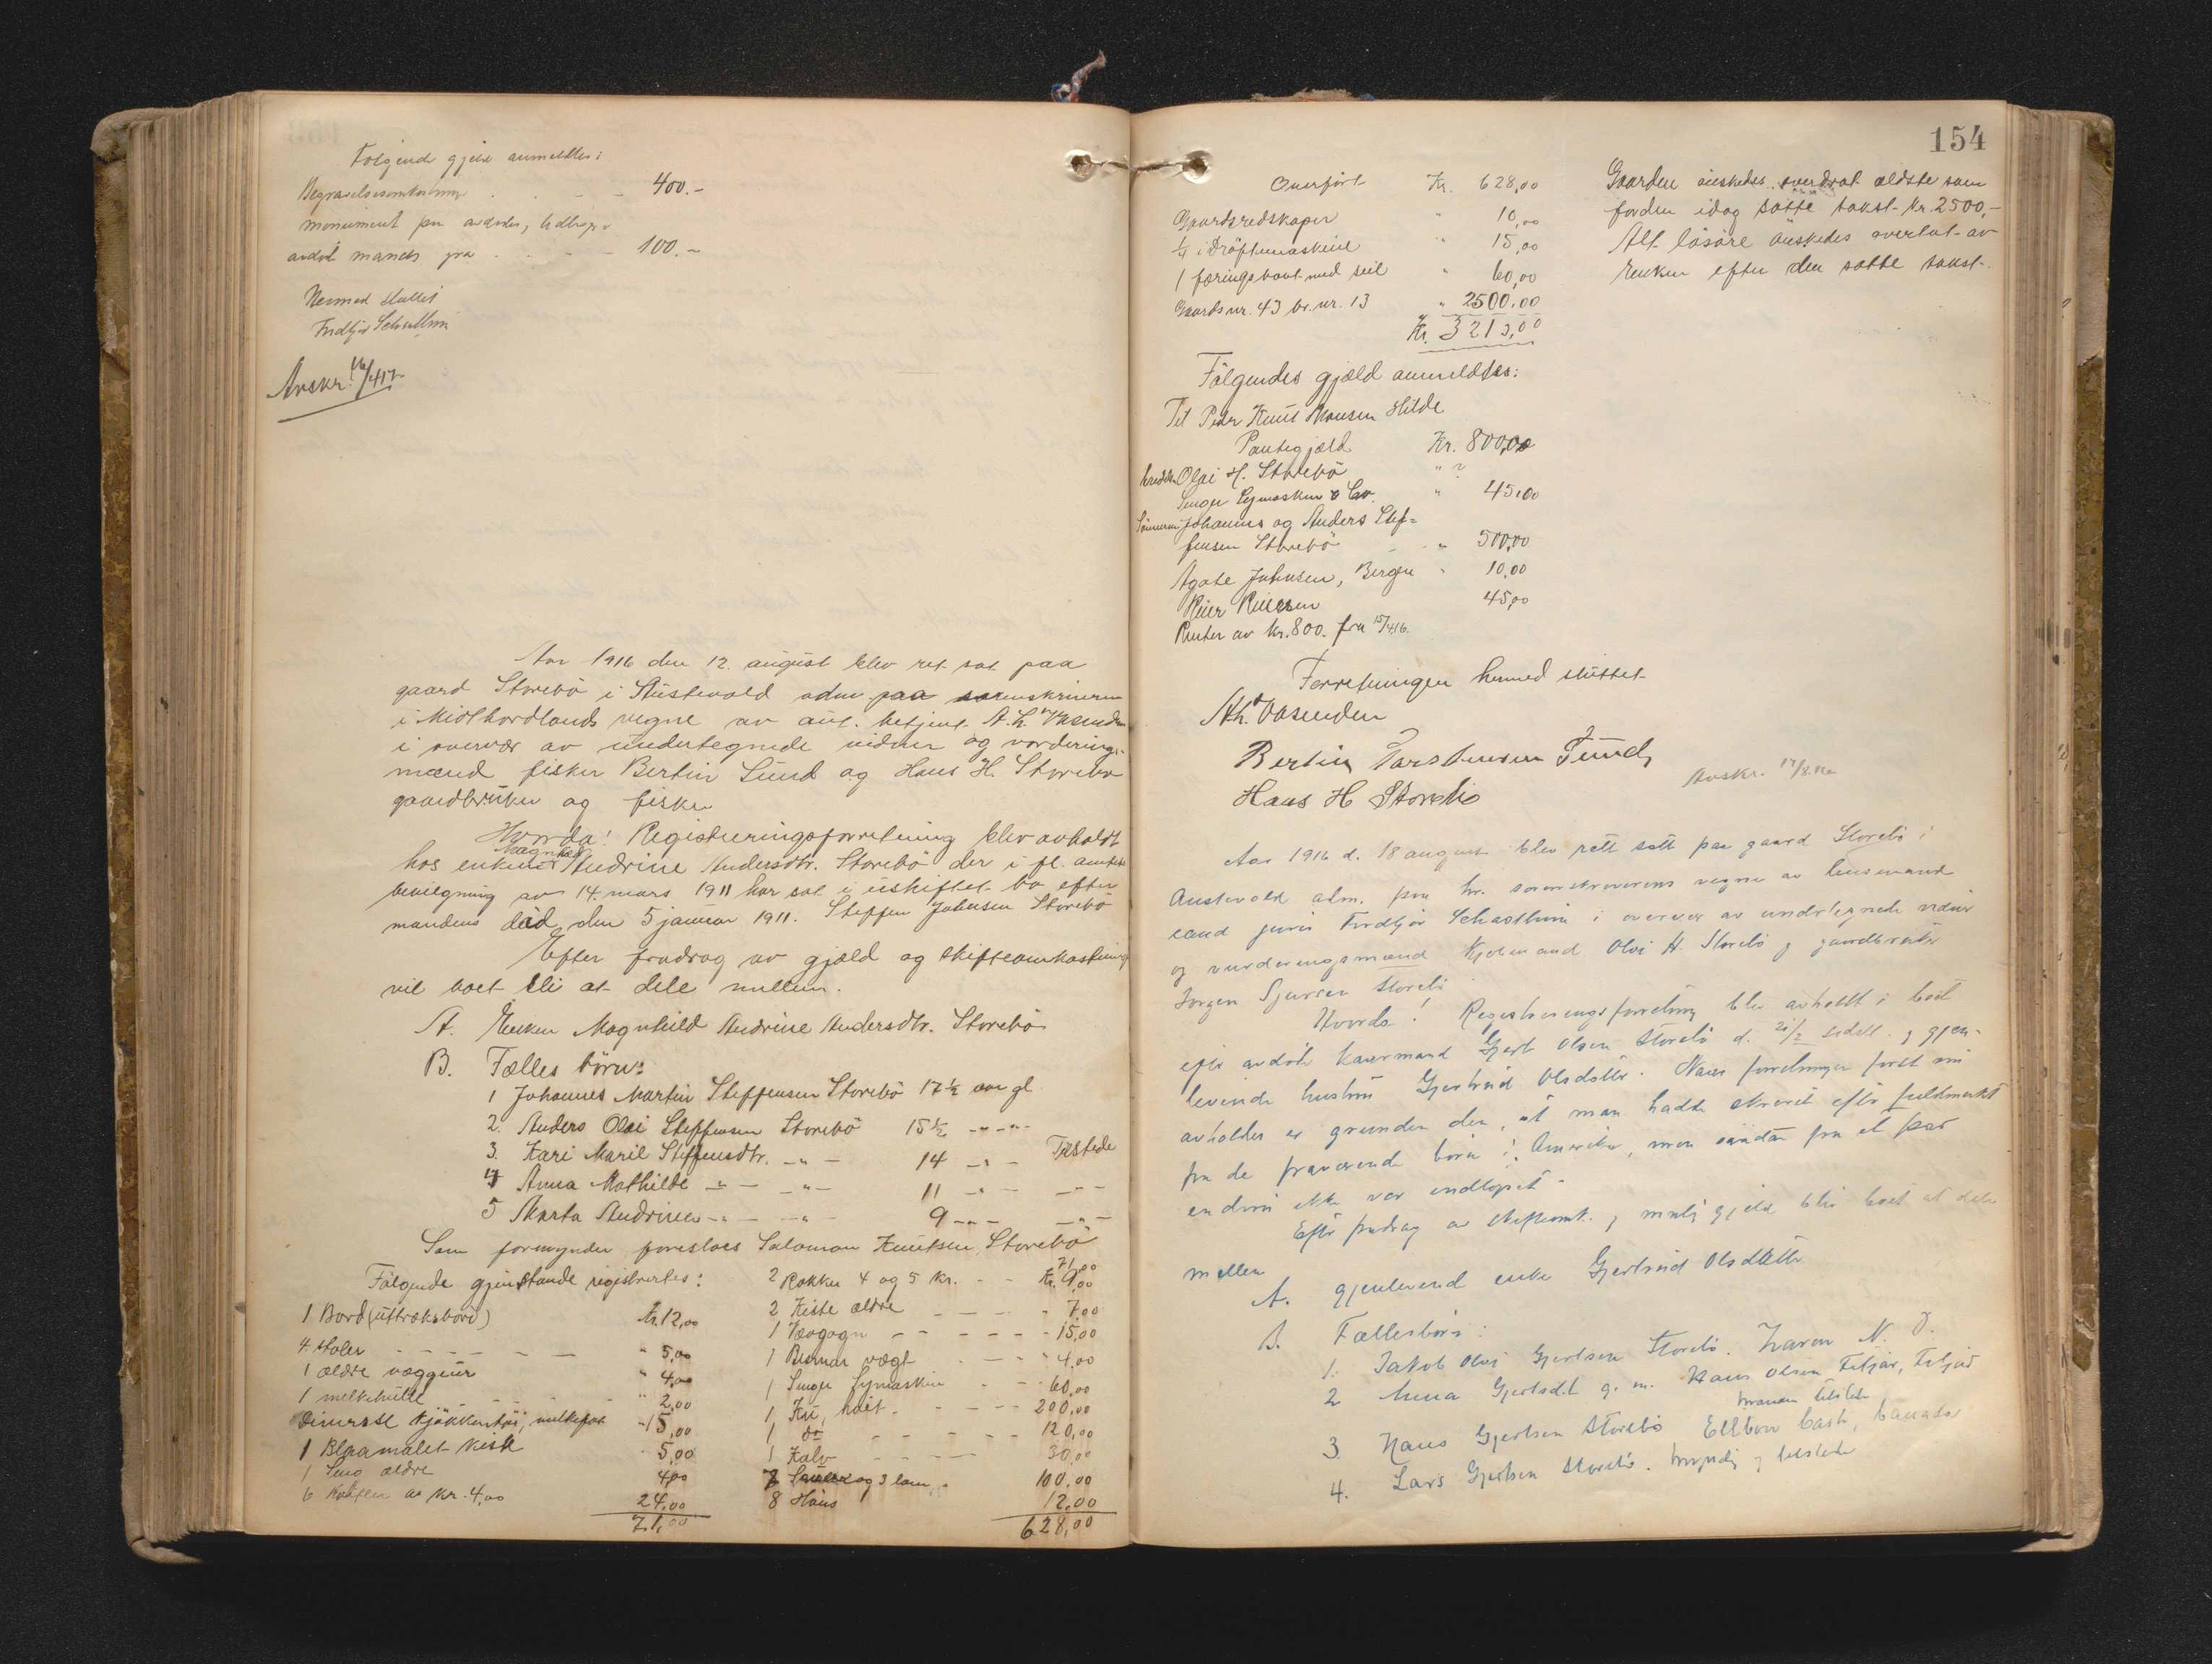 Følgende gjeld anmeldtes:
Begravelsesomkostning . . . - - 400.-
monument paa avdødes,
avdøde mands grav . . . - 100.-
Hermed sluttet
Fridtjov Schasthun
Avskr. 14/4 17
Aar 1916 den 12. august blev ret sat paa
gaard Storebö i Austevold adm. paa sorenskriveren
i Midthordlands vegne av aut. betjent A. L. Vasenden
i overvær av undertegnede vidner og vorderings-
mænd fisker Bertin Sund og Hans H. Storebö
gaardbruker og fisker
Hvorda! Registreringsforretning blev avholdt
hos enken Magnhild Andrine Andersdtr. Storebö der i fl. amtets
bevilgning av 14. mars 1911 har sat i uskiftet bo efter
mandens död, den 5 januar 1911. Steffen Johnsen Storebö
Efter fradrag av gjæld og skifteomkostninger
vil boet bli at dele mellem.
A. Enken Magnhild Andrine Andersdtr. Storebö
B. Fælles börn:
1 Johannes Martin Steffensen Storebö 17½ aar gl
2. Anders Olai Steffensen Storebö 15½ -"-"-
3. Kari Marie Steffensdtr. -"- 14 -"- Tilstede
4 Anna Mathilde -"- -"- 11 -"- -"-
5 Marta Andrine -"- -"- 9 -"- -"-
Som formynder foreslaaes Salomon Knutsen, Storebö
Følgende gjenstande registrertes:
1 Bord (uttræksbord) Kr. 12,00
4 stoler - - - - - " 5,00
1 ældre væggeur " 4,00
1 melkehylle - - - " 2,00
Diverse kjökkentöi, melkefat " 15,00
1 Blaamalet kiste " 5,00
1 Seng ældre 4,00
6 a kr. 4,00 24,00
71,00
71,00
2 Rokker 4 og 5 kr. - - Kr. 9,00
2 Kister ældre - - - " 7,00
1 - - - - - - 15,00
1 Bismar vægt - - - " 4,00
1 Singer symaskin - - - 60,00
1 Ku, hvit - - - - - 200,00
1 do - - - - - - 120,00
1 Kalv - - - - 30,00
7 Sauer og 3 lam 100,00
8 Höns 12,00
628,00
154
Overfört Kr. 628,00
Gaardsredskaper " 10,00
¼ i Dröftemaskine " 15,00
1 færingsbaat med seil " 60,00
Gaardsnr. 43 br. nr. 13 " 2500,00
Kr. 3213,00
Gaarden önskedes overdrat ældste sön
for den idag satte takst - kr. 2500,-
Alt lösöre önskedes overlat av
Enken efter den satte takst.
Fölgendes gjæld anmeldtes:
Til Peder Knut Monsen Hilde
Pantegjæld Kr. 800,00
Olai H. Storebö " ?
Singer Symaskin & Co. " 45,00
Sönnerne Johannes og Anders Stef-
fensen Storebö - " 500,00
Agate Johnsen, Bergen " 10,00
45,00
Renter av kr. 800. fra 15/4 16.
Forretningen hermed sluttet
A. L. Vasenden
Bertin Tarstensen Sund,
Hans H Storebö
Avskr. 17/8.16
Aar 1916 d. 18 august blev rett satt paa gaard Storebö i
Austevold alm. paa hr. sorenskriverens vegne av lensmand
cand juris Fridtjov Schasthun i overvær av undertegnede vidner
og vurderingsmænd Olai H. Storebö og gaardbruker
Jörgen Sjursen Storebö
Hvorda! Registreringsforretning blev avholdt i boet
efter avdöde kaarmand Gjert Olsen Storebö d. 20/2 sidstl. og gjen-
levende hustru Gjertrud Olsdatter. Naar forretningen först nu
avholdes er grunden den, at man hadde skrevet efter fuldmakt
fra de fraværende börn i Amerika, men saadan fra et par
endnu ikke var indlöpet.
Efter fradrag av skifteomk. og mulig gjeld blir boet at dele
mellem
A. gjenlevende enke Gjertrud Olsdatter
B. Fællesbörn:
1. Jakob Olai Gjertsen Storebö.
2 Anna Gjertsdt. g. m. Hans Olsen Fitjar, Fitjar
manden tilstede
3 Hans Gjertsen Storebö Canada
4. Lars Gjertsen Storebö. myndig og tilstede